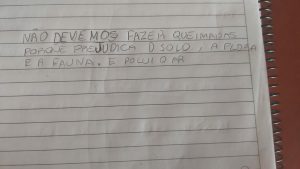 NÃO DEVEMOS FAZER QUEIMADAS
PORQUE PREJUDICA O SOLO, A FLORA
E A FAUNA. E POLUI O AR